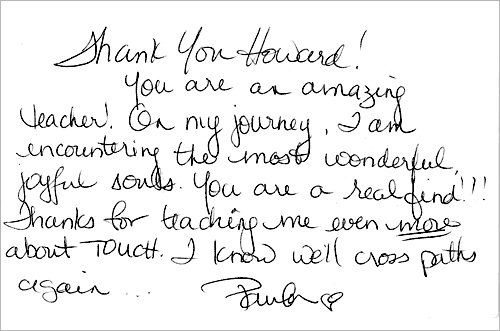 Thank You Howard!
You are an amazing
teacher! On my journey, I am
encountering the most wonderful,
joyful souls. You are a real find!!!
Thanks for teaching me even more
about TOUCH. I know we'll cross paths
again ...